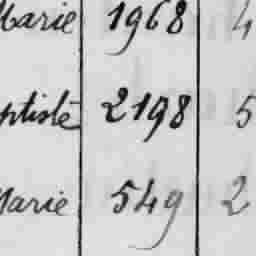 Marie 1968 4
ptiste 2198 5
Marie 549 2